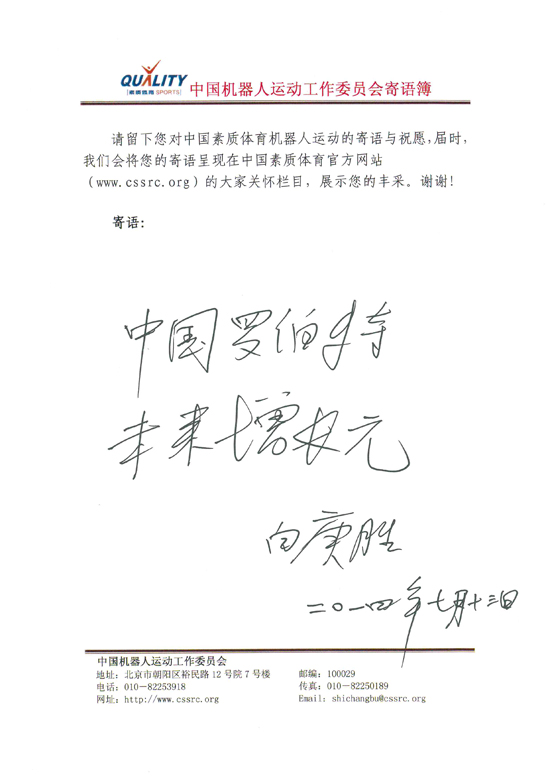 QUALITY
素质体育 SPORTS
中国机器人运动工作委员会寄语簿
请留下您对中国素质体育机器人运动的寄语与祝愿,届时,
我们会将您的寄语呈现在中国素质体育官方网站
(www.cssrc.org)的大家关怀栏目,展示您的丰采。谢谢!
寄语:
中国罗伯特
未来增权元
向庚胜
二〇一四年七月十三日
中国机器人运动工作委员会
地址:北京市朝阳区裕民路12号院7号楼 邮编:100029
电话:010-82253918 传真:010-82250189
网址:http://www.cssrc.org Email:shichangbu@cssrc.org